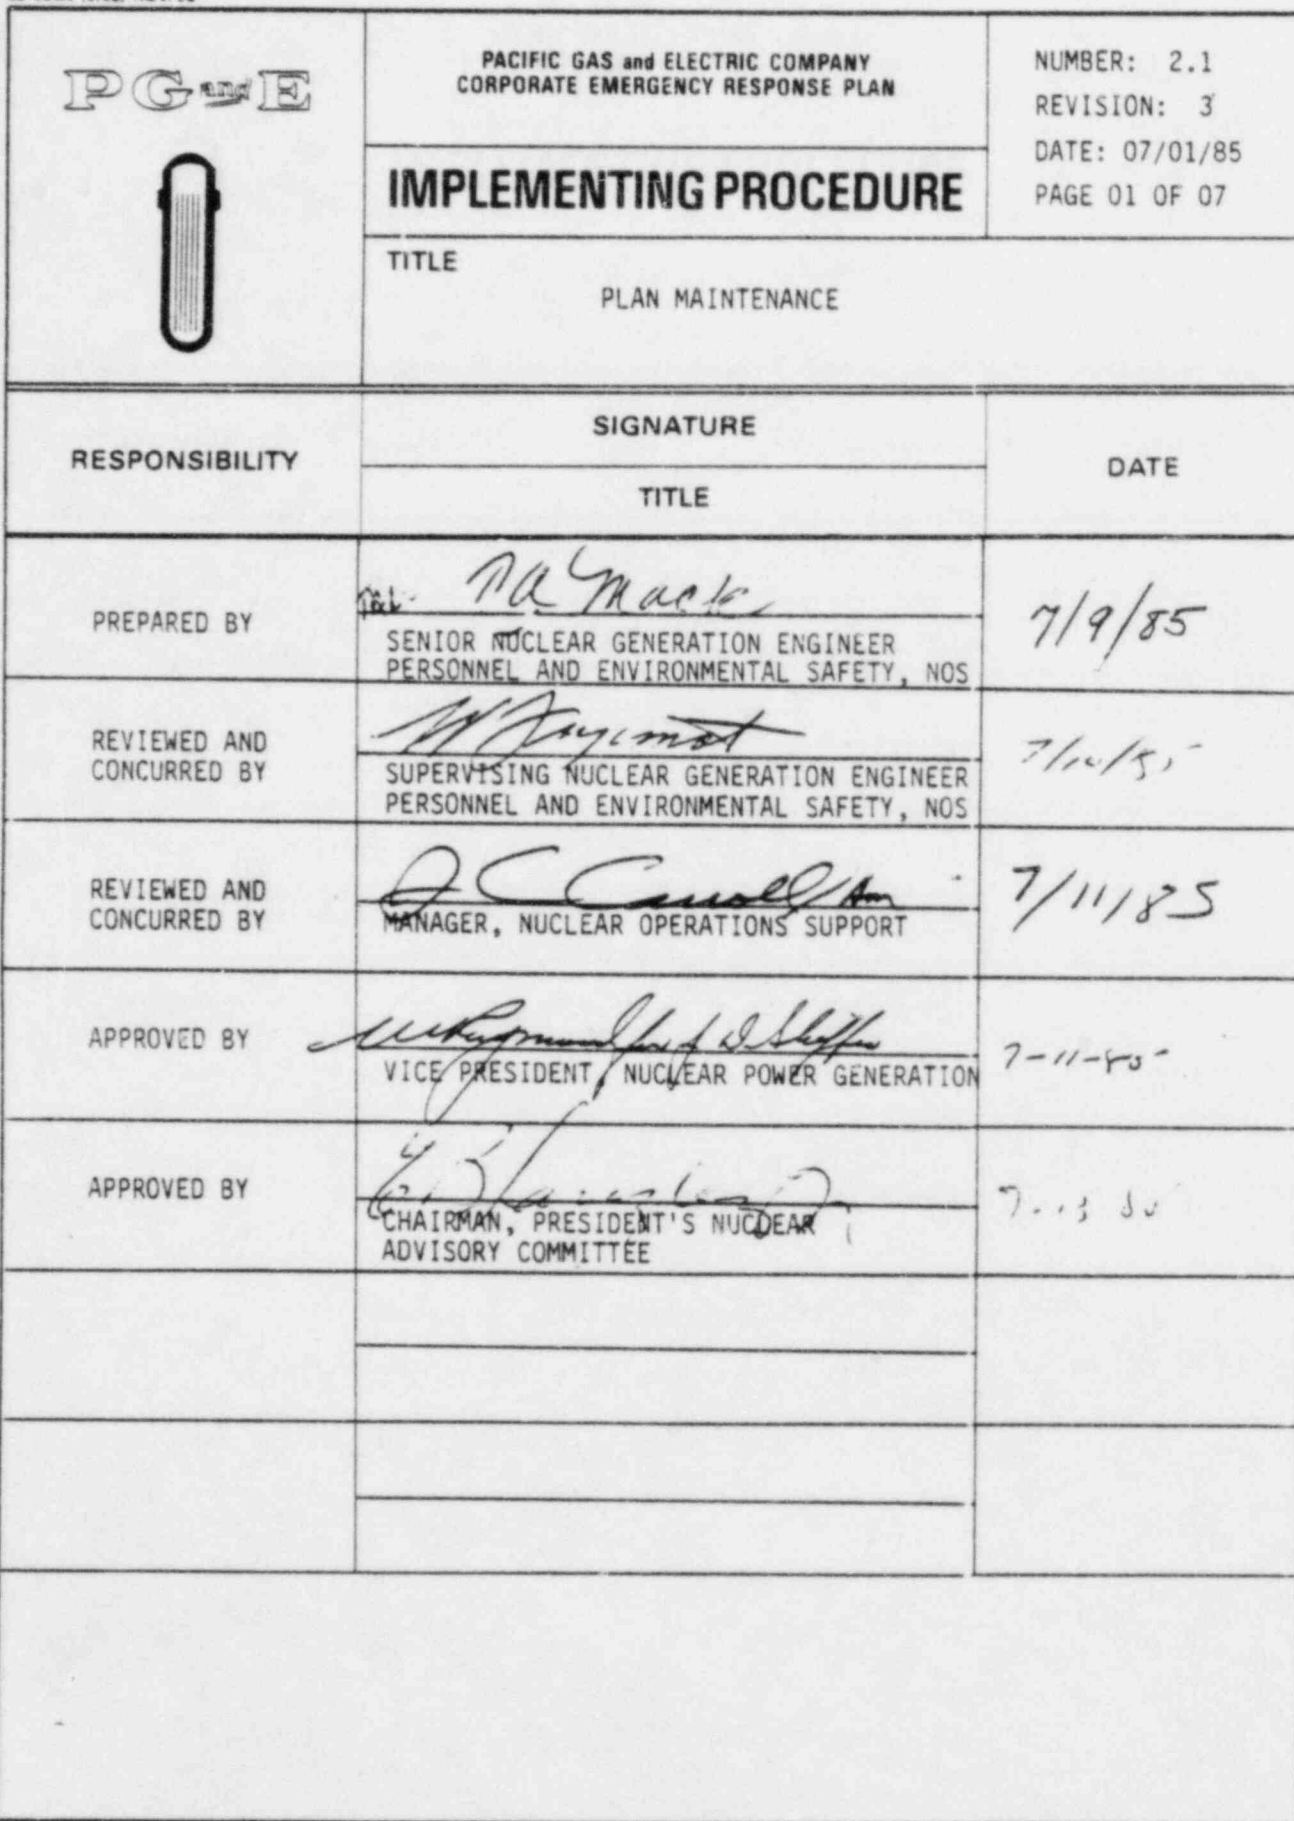 PG and E
PACIFIC GAS and ELECTRIC COMPANY
CORPORATE EMERGENCY RESPONSE PLAN
IMPLEMENTING PROCEDURE
NUMBER: 2.1
REVISION: 3
DATE: 07/01/85
PAGE 01 OF 07
TITLE
PLAN MAINTENANCE
RESPONSIBILITY
SIGNATURE
TITLE
DATE
PREPARED BY
Mack
SENIOR NUCLEAR GENERATION ENGINEER
PERSONNEL AND ENVIRONMENTAL SAFETY, NOS
7/9/85
REVIEWED AND
CONCURRED BY
SUPERVISING NUCLEAR GENERATION ENGINEER
PERSONNEL AND ENVIRONMENTAL SAFETY, NOS
7/10/85
REVIEWED AND
CONCURRED BY
J C Carroll
MANAGER, NUCLEAR OPERATIONS SUPPORT
7/11/85
APPROVED BY
VICE PRESIDENT, NUCLEAR POWER GENERATION
7-11-85
APPROVED BY
CHAIRMAN, PRESIDENT'S NUCLEAR
ADVISORY COMMITTEE